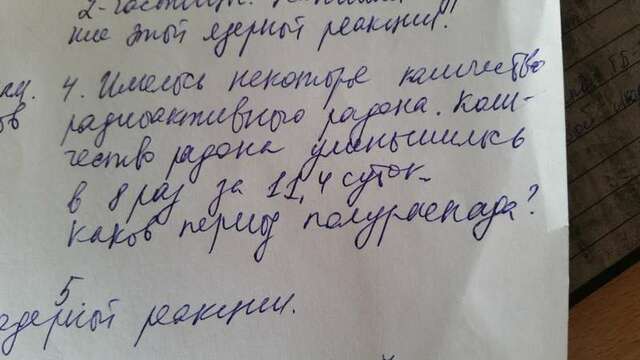 ние этой ядерной реакции!!
4. Имелось некоторое количество
радиоактивного радона. Коли-
чество радона уменьшилось
в 8 раз за 11,4 суток.
Каков период полураспада?
5
ядерной реакции.